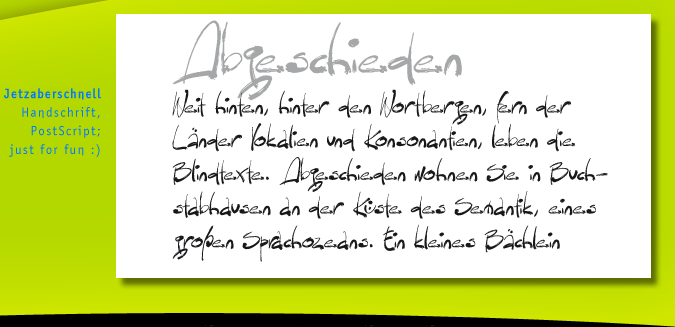 Abgeschieden
Jetzaberschnell
Handschrift,
PostScript;
just for fun :)
Weit hinten, hinter den Wortbergen, fern der
Länder Vokalien und Konsonantien, leben die
Blindtexte. Abgeschieden wohnen Sie in Buch-
stabhausen an der Küste des Semantik, eines
großen Sprachozeans. Ein kleines Bächlein